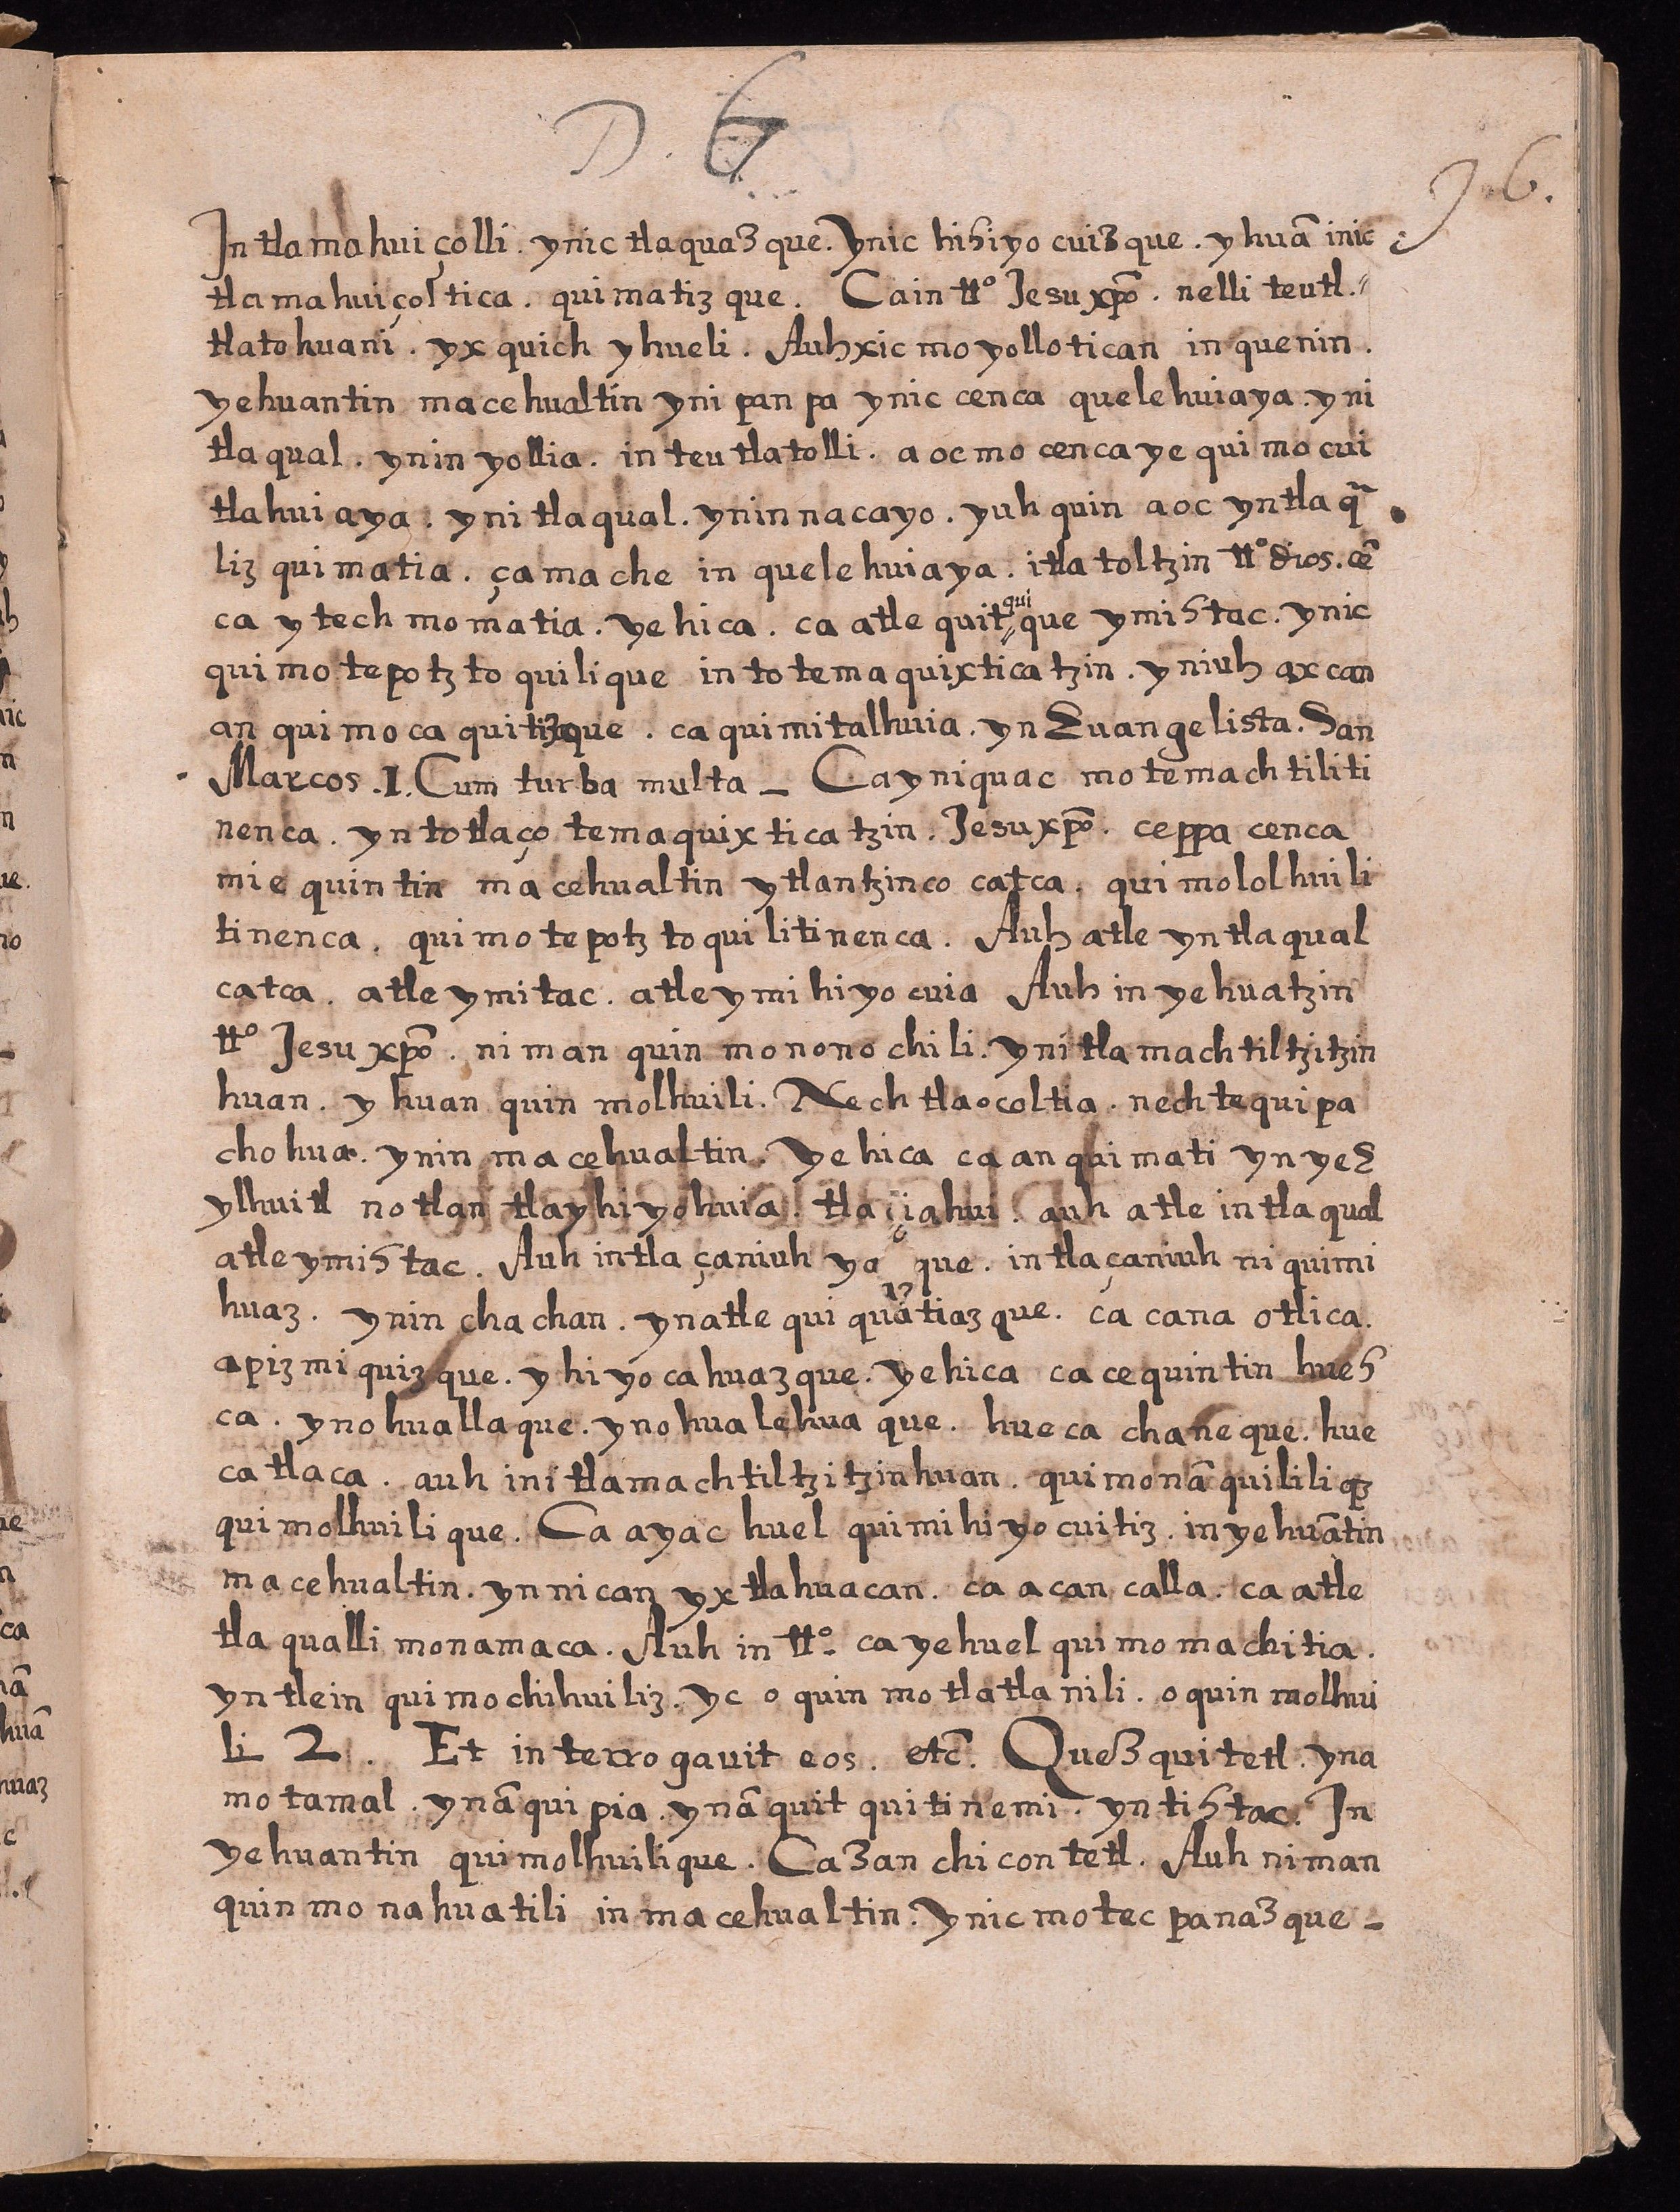 D. 6
J 6.
In tlamahuiçolli. ynic tlaquazque. Ynic hihiyo cuizque. yhuã inic
tlamahuiçoltica. quimatizque. Cain tt⁰ Jesu xp̃o. nelli teutl.
tlatohuani. yxquich yhueli. Auh xicmoyollotican in quenin.
yehuantin macehualtin yni pan pa ynic cenca quelehuiaya. yni
tlaqual. ynin yollia. in teutlatolli. aocmo cenca ye quimocui
tlahuiaya. yni tlaqual. ynin nacayo. yuhquin aoc yntlaq̃
liz quimatia. çamache in quelehuiaya. itlatoltzin tt⁰ dios. cẽ
ca ytech momatia. yehica. ca atle quitquique ymihtac. ynic
quimotepotztoquilique in totemaquixticatzin. yniuh axcan
anquimocaquitizque. ca quimitalhuia. yn Euangelista. San
Marcos .I. Cum turba multa _ Ca yniquac motemachtiliti
nenca. yn totlaço temaquixticatzin. Jesu xp̃o. ceppa cenca
miequintin macehualtin ytlantzinco catca. quimololhuili
tinenca. quimotepotztoquilitinenca. Auh atle yntlaqual
catca. atle ymitac. atle ymihiyocuia Auh in yehuatzin
tt⁰ Jesu xp̃o. niman quinmononochili. yni tlamachtiltzitzin
huan. yhuan quinmolhuili. Nechtlaocoltia. nechtequipa
chohua. ynin macehualtin. Yehica ca anquimati yn ye 3
ylhuitl notlan tlayhiyohuia. tlaciahui. auh atle intlaqual
atle ymihtac. Auh intla çaniuh yazque. intla çaniuh niquimi
huaz. ynin chachan. yn atle quiquãtiazque. ca cana otlica.
apizmiquizque. yhiyocahuazque. yehica ca cequintin hueh
ca. ynohuallaque. ynohualehuaque. hueca chaneque. hue
ca tlaca. auh in itlamachtiltzitzinhuan. quimonãquililiq̃
quimolhuilique. Ca ayac huel quimihiyocuitiz. in yehuãtin
macehualtin. yn nican yxtlahuacan. ca acan calla. ca atle
tlaqualli monamaca. Auh in tt⁰. ca ye huel quimomachitia.
yn tlein quimochihuiliz. yc oquinmotlatlanili. oquinmolhui
li 2. Et interrogauit eos. etc̃. Quezquitetl. yna
motamal. ynãquipia. ynãquitquitinemi. yn tihtac. In
yehuantin quimolhuilique. Ca zan chicontetl. Auh niman
quinmonahuatili in macehualtin. Ynic motecpanazque _